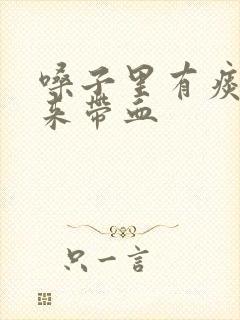 嗓子里有痰
来带血
只一言